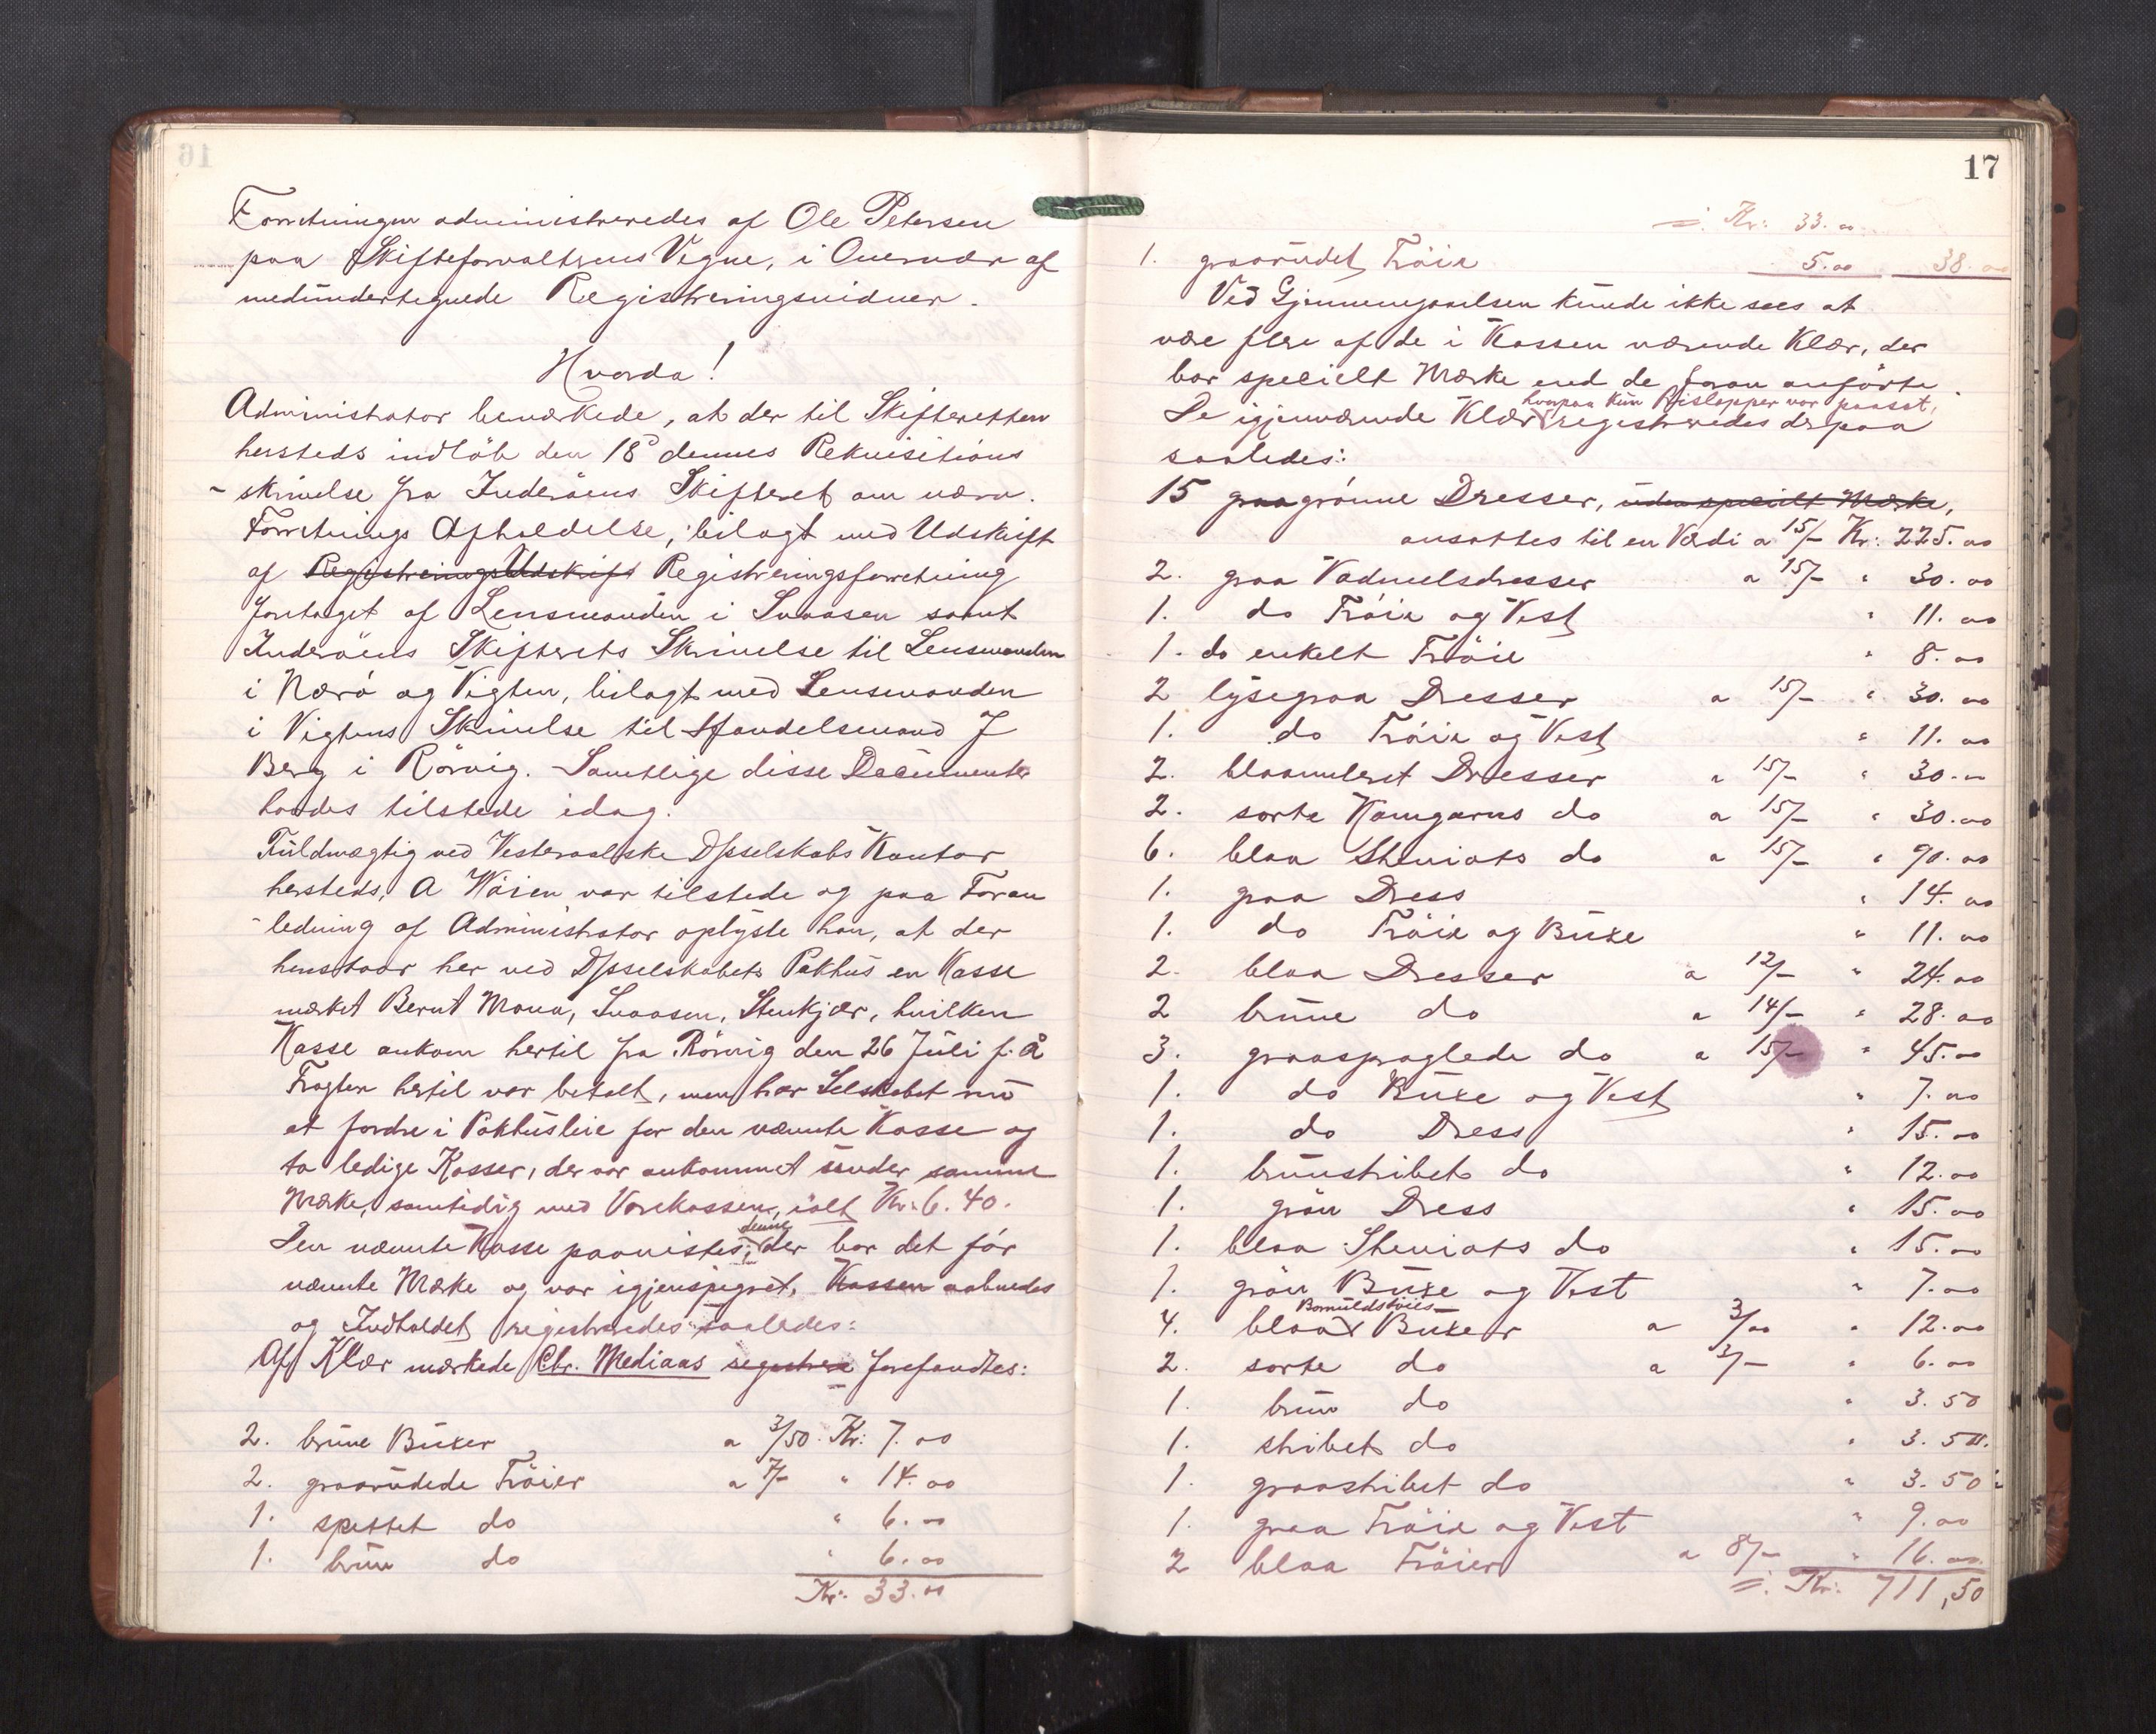 16
Forretningen administreredes af Ole Petersen
paa Skifteforvalterens Vegne, i Overvær af
medundertegnede Registreringsvidner.
Hvorda!
Administrator bemærkede, at der til Skifteretten
hersteds indløb den 18d dennes Rekvisitions
- skrivelse fra Inderöens Skifteret om nærv.
Forretnings Afholdelse, bilagt med Udskrift
af RegistreringsUdskrift Registreringsforretning
foretaget af Lensmanden i Snaasen samt
Inderöens Skifterets Skrivelse til Lensmanden
i Nærö og Vigten, bilagt med Lensmanden
i Vigtens Skrivelse til Handelsmand J
Berg i Rörvig. Samtlige disse Documenter
havdes tilstede idag.
Fuldmægtig ved Vesteraalske Dsselskabs Kontor
hersteds, A Wöien var tilstede og paa Foran
- ledning af Administrator oplyste han, at der
henstaar her ved Dsselskabets Pakhus en Kasse
mærket Bernt Mona, Snaasen, Stenkjær, hvilken
Kasse ankom hertil fra Rörvig den 26 Juli f. A
Fragten hertil var betalt, men har Selskabet nu
at fordre i Pakhusleie for den nævnte Kasse og
to ledige Kasser, der var ankommet under samme
Mærke, samtidig med Varekassen, ialt Kr. 6.40.
Den nævnte Kasse paavistes; denne der bar det før
nævnte Mærke og var igjenspigret, Kassen aabnedes
og Indholdet registreredes saaledes:
Af Klær mærkede Chr. Mediaas registrere forefandtes:
2. brune Buxer a 3/50 Kr: 7.00
2. graarudede Tröier a 7/- " 14.00
1. spettet do " 6.00
1. brun do " 6.00
Kr: 33.00
17
=: Kr: 33.00
1. graarudet Tröie 5.00 38.00
Ved Gjennemgaaelsen kunde ikke sees at
være flere af de i Kassen værende Klær, der
bar specielt Mærke end de foran anførte.
hvorpaa kun Prislapper var paasat,
De igjenværende Klær registreredes derpaa
saaledes:
15 graagrönne Dresser, uden specielt Mærke,
ansattes til en Værdi a 15/- Kr: 225.00
2. graa Vadmelsdresser a 15/- " 30.00
1. do Tröie og Vest " 11.00
1. do enkelt Tröie " 8.00
2 lysegraa Dresser a 15/- " 30.00
1. do Tröie og Vest " 11.00
2. blaamelert Dresser a 15/- " 30.00
2. sorte Kamgarns do a 15/- " 30.00
6. blaa Sheviots do a 15/- " 90.00
1. graa Dress " 14.00
1. do Tröie og Buxe " 11.00
2. blaa Dresser a 12/- " 24.00
2 brune do a 14/- " 28.00
3. graaspraglede do a 15/- " 45.00
1. do Buxe og Vest " 7.00
1. do Dress " 15.00
1. brunstribet do " 12.00
1. grön Dress " 15.00
1. blaa Sheviots do " 15.00
1. grön Buxe og Vest " 7.00
Bomuldstöies
4. blaa Buxer a 3/00 " 12.00
2. sorte do a 3/- " 6.00
1. brun do " 3.50
1. stribet do " 3.50
1. graastribet do " 3.50
1. graa Tröie og Vest " 9.00
2 blaa Tröier a 8/- " 16.00
=: Kr: 711,50